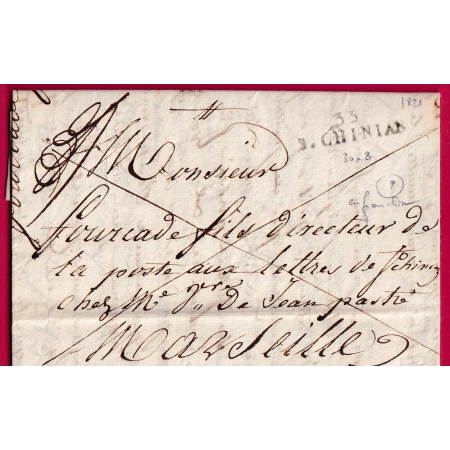 1821
33
S.CHINIAN
30x8
Monsieur
fourcade fils directeur de
la poste aux lettres de St chinian
chez Me De Jean pastré
Marseille